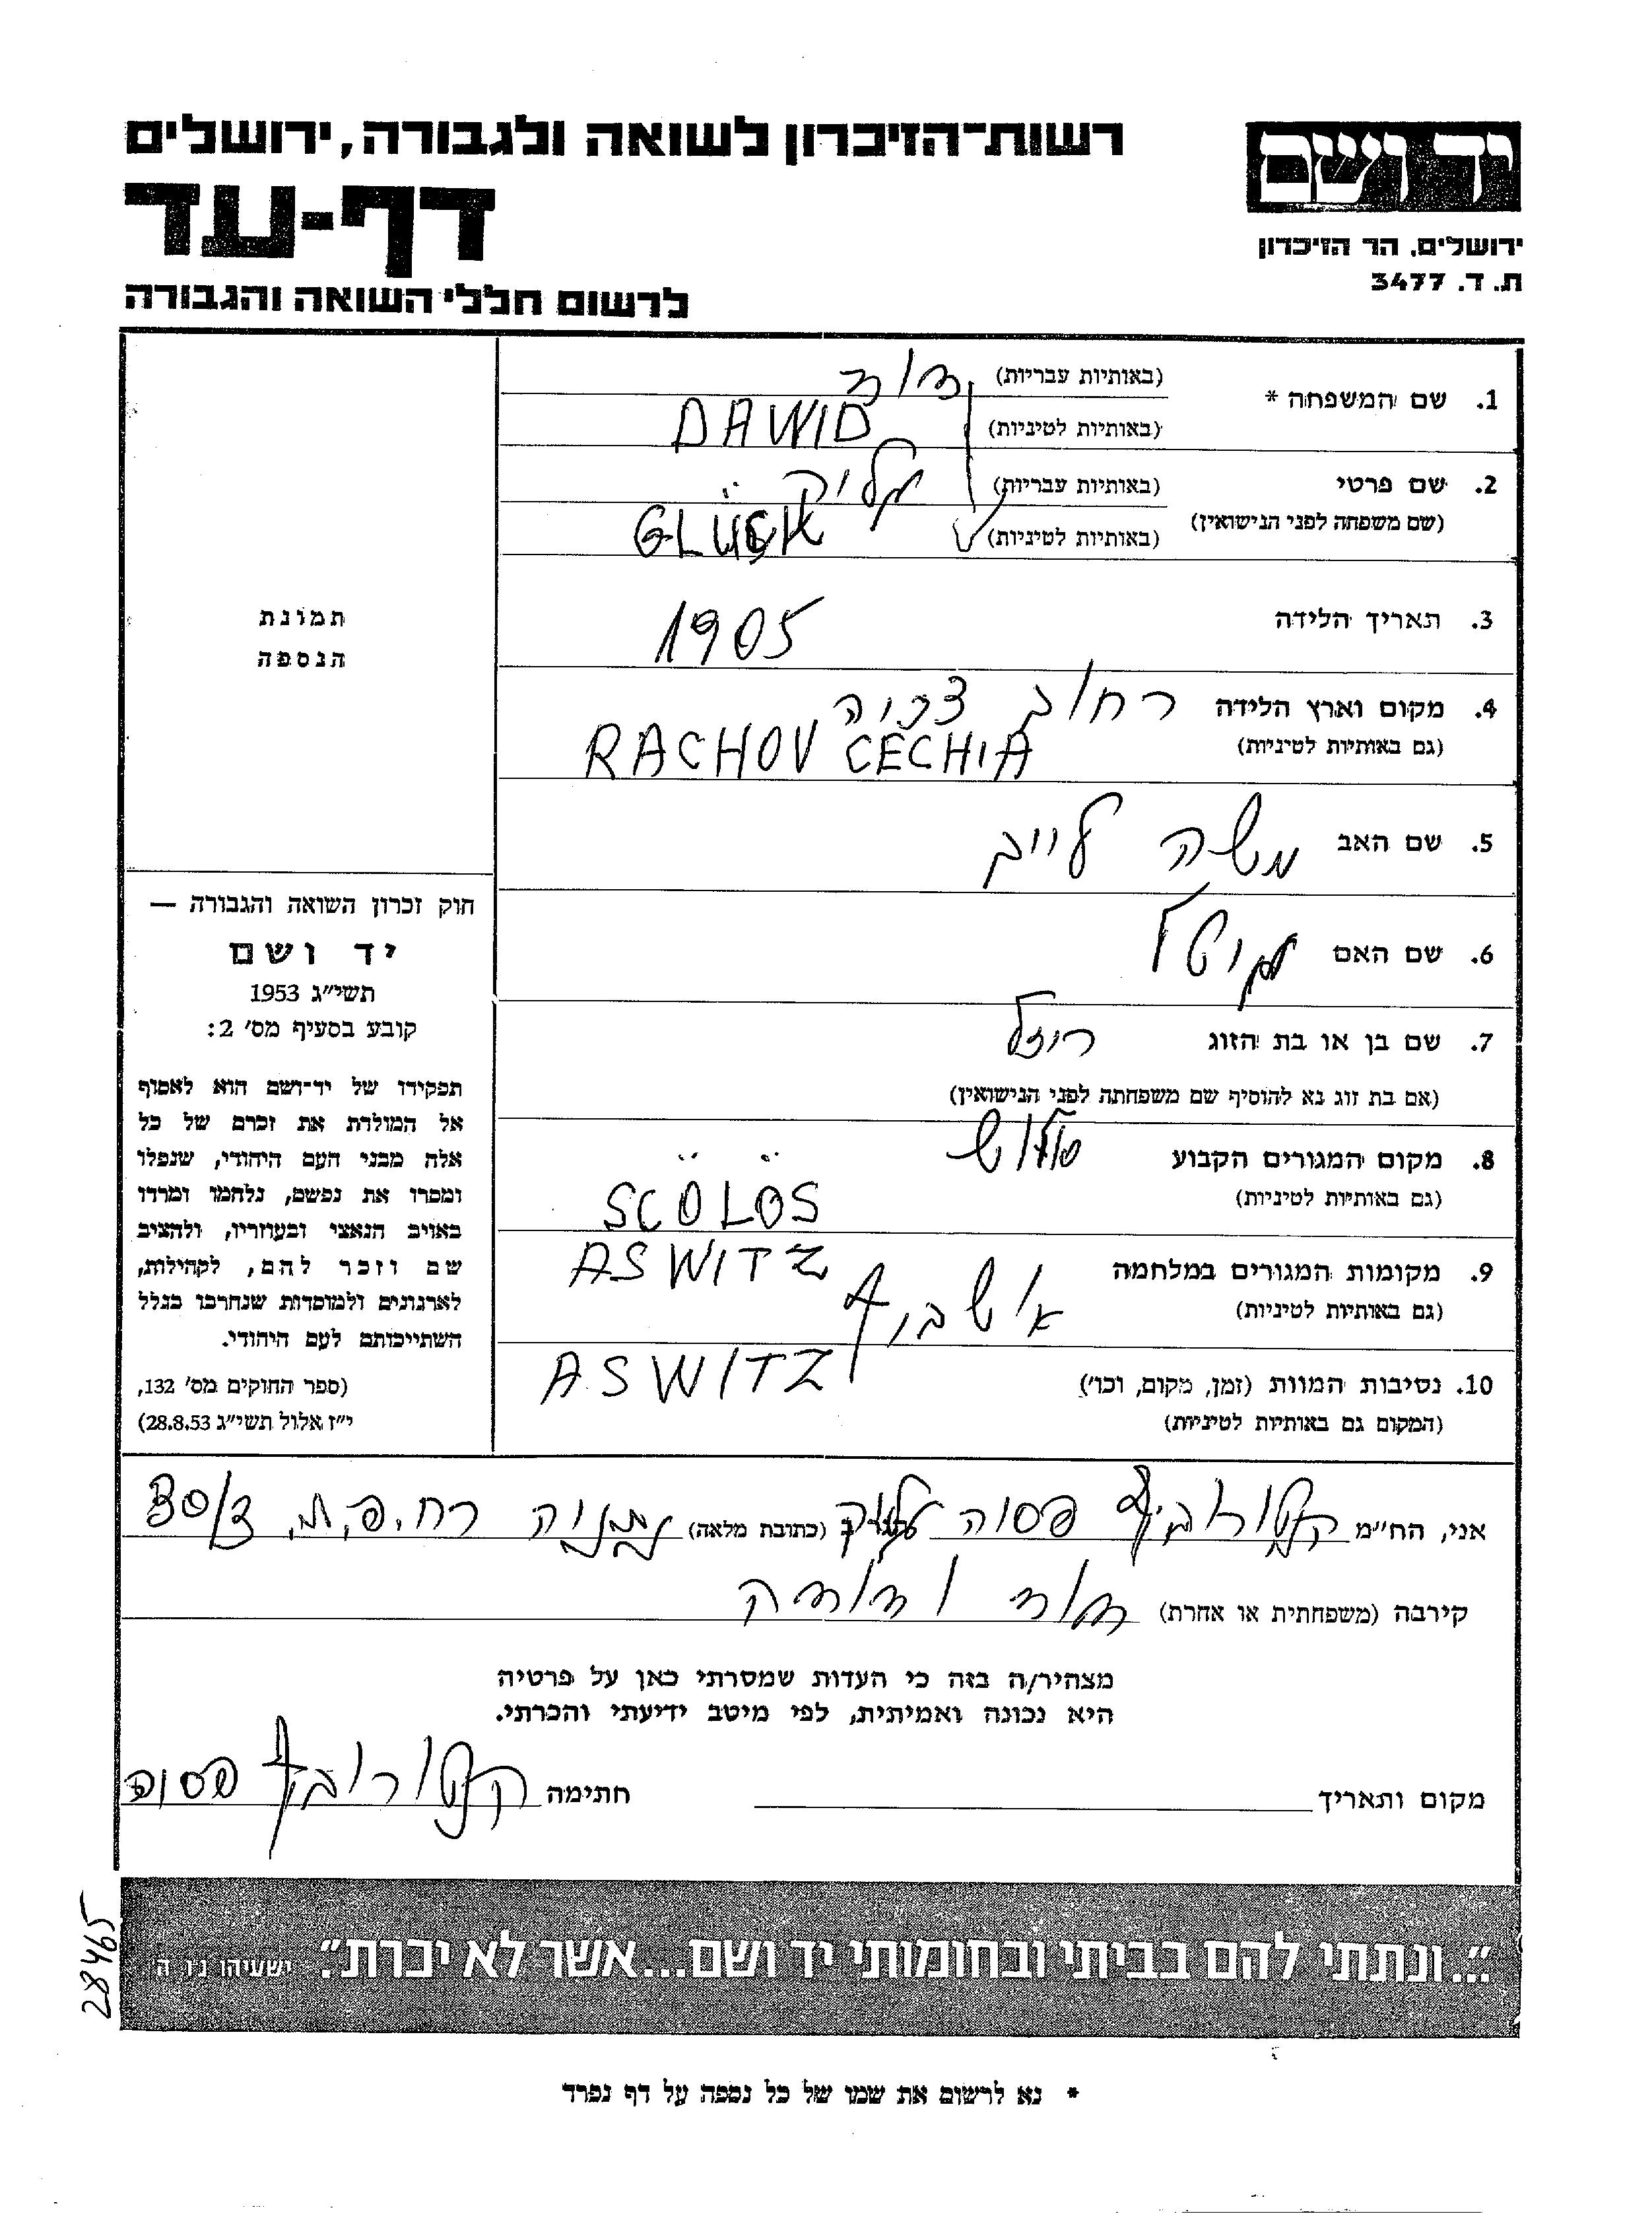 יד ושם
רשות־הזיכרון לשואה ולגבורה, ירושלים
דף-עד
ירושלים, הר הזיכרון
ת. ד. 3477
לרשום חללי השואה והגבורה
1. שם המשפחה * (באותיות עבריות) דוד
(באותיות לטיניות) DAWID
2. שם פרטי (באותיות עבריות) גליק
(שם משפחה לפני הנישואין) (באותיות לטיניות) GLÜCK
3. תאריך הלידה 1905
4. מקום וארץ הלידה רחוב צכיה
(גם באותיות לטיניות) RACHOV CECHIA
5. שם האב משה לייב
6. שם האם
7. שם בן או בת הזוג רוזל
(אם בת זוג נא להוסיף שם משפחתה לפני הנישואין)
8. מקום המגורים הקבוע
(גם באותיות לטיניות) SCÖLÖS
9. מקומות המגורים במלחמה ASWITZ
(גם באותיות לטיניות) אושביץ
10. נסיבות המוות (זמן, מקום, וכו') ASWITZ
(המקום גם באותיות לטיניות)
תמונת
הנספה
חוק זכרון השואה והגבורה —
יד ושם
תשי"ג 1953
קובע בסעיף מס' 2:
תפקידו של יד-ושם הוא לאסוף
אל המולדת את זכרם של כל
אלה מבני העם היהודי, שנפלו
ומסרו את נפשם, נלחמו ומרדו
באויב הנאצי ובעוזריו, ולהציב
שם וזכר להם, לקהילות,
לארגונים ולמוסדות שנחרבו בגלל
השתייכותם לעם היהודי.
(ספר החוקים מס' 132,
י"ז אלול תשי"ג 28.8.53)
אני, הח"מ קנטורוביץ פסוה גליק (כתובת מלאה) נתניה רח.
קירבה (משפחתית או אחרת) דוד ודודה
מצהיר/ה בזה כי העדות שמסרתי כאן על פרטיה
היא נכונה ואמיתית, לפי מיטב ידיעתי והכרתי.
מקום ותאריך חתימה קנטורוביץ פסוה
"...ונתתי להם בביתי ובחומותי יד ושם...אשר לא יכרת". ישעיהו נ"ו ה'
28465
* נא לרשום את שמו של כל נספה על דף נפרד